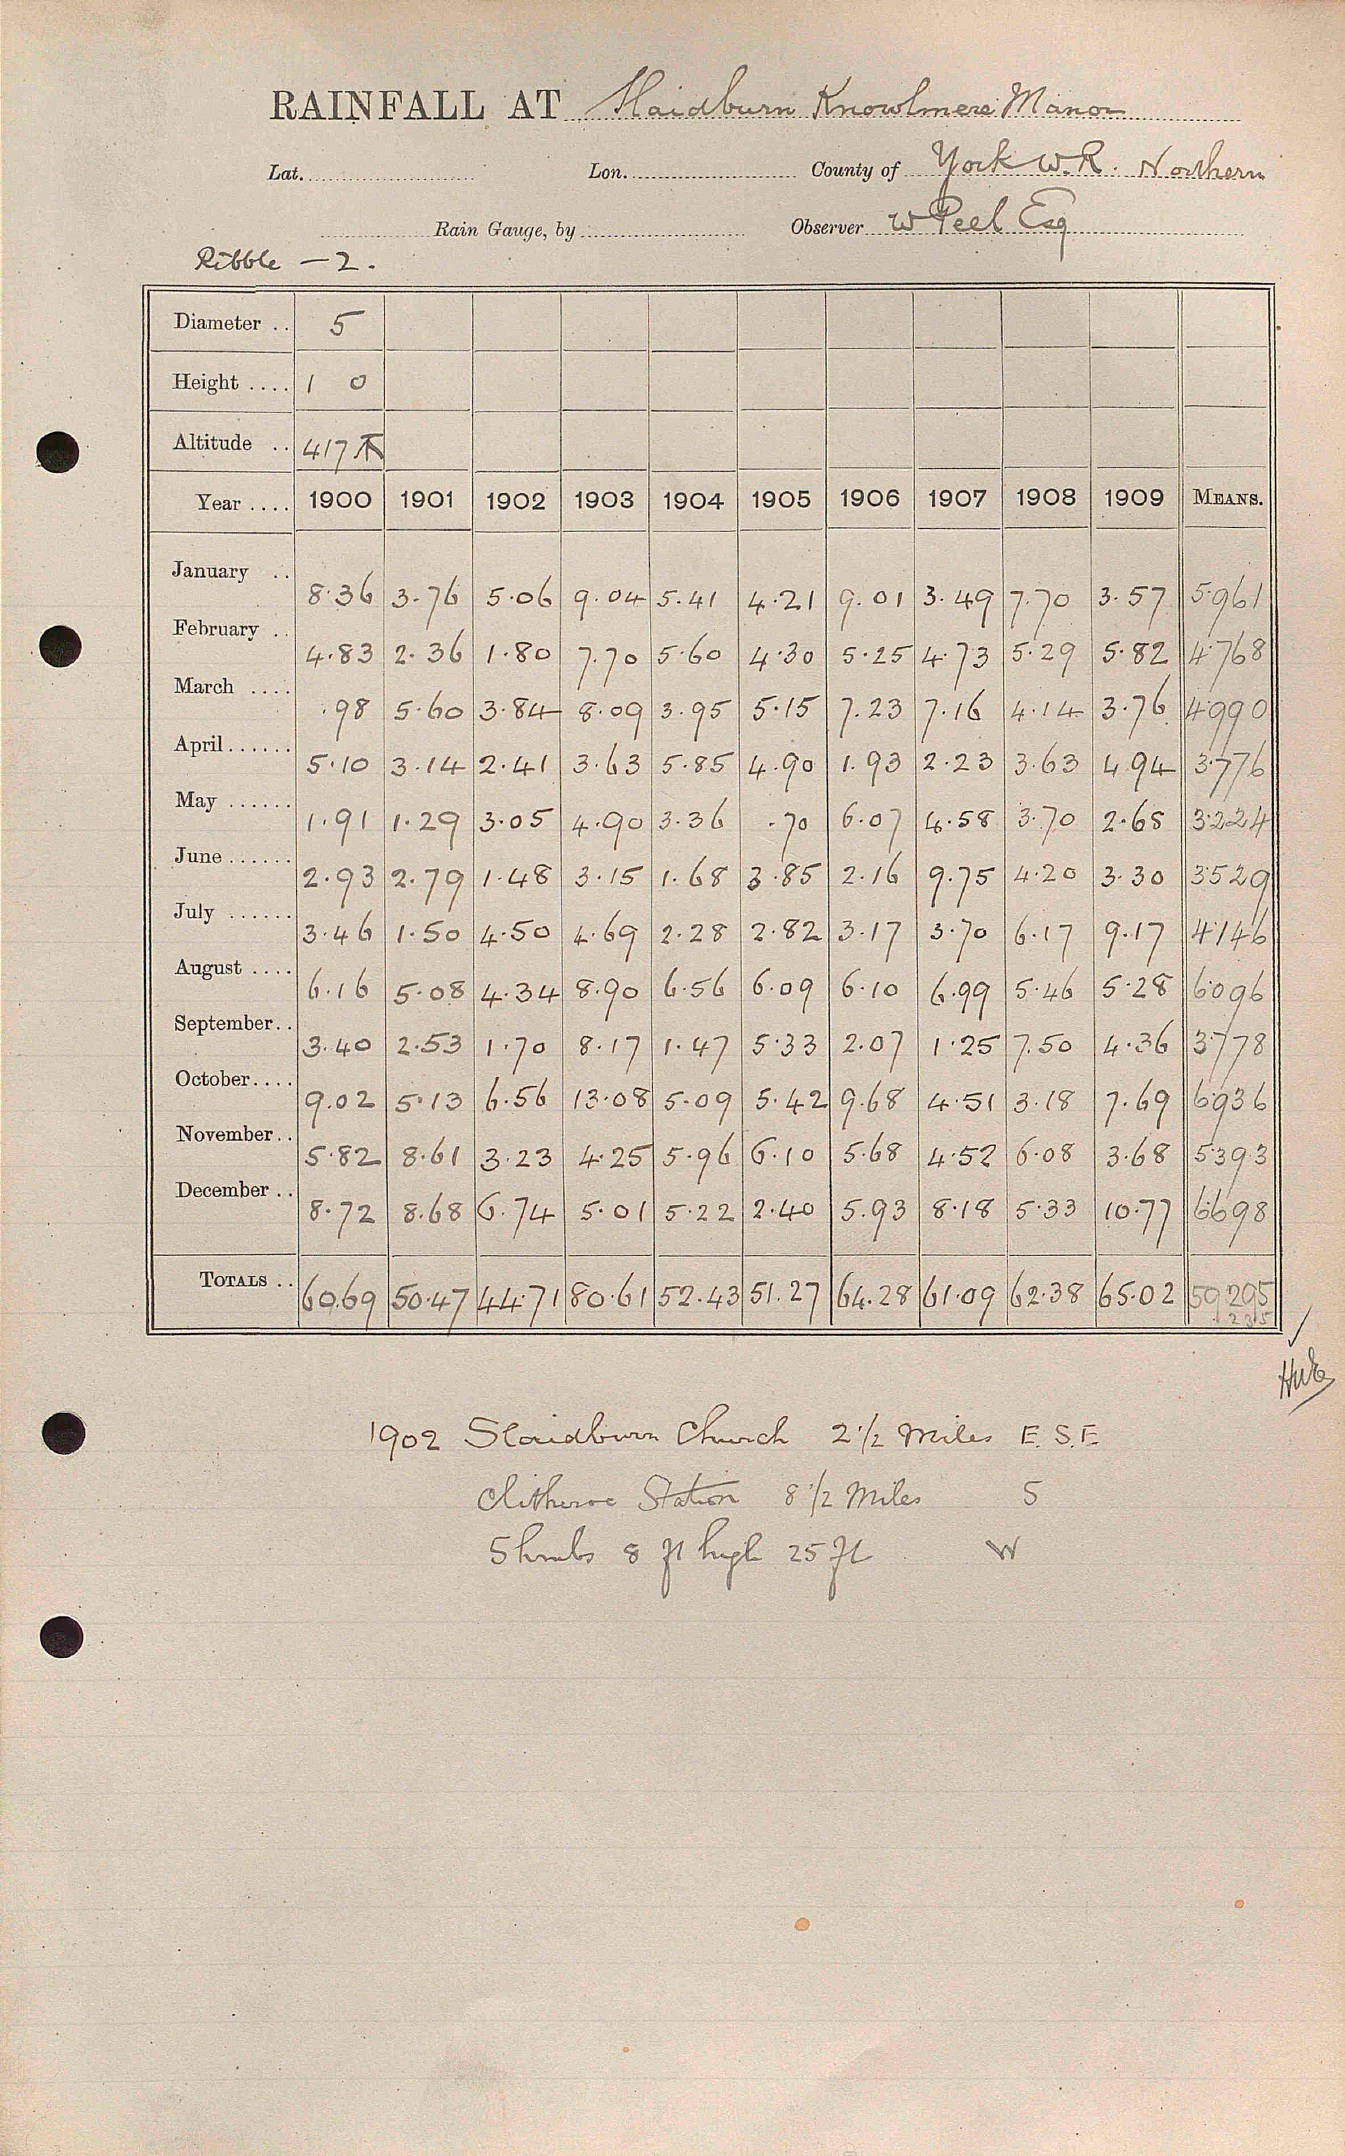 RAINFALL AT Slaidburn Knowlmere Manor
Lat. Lon. County of York W.R. Northern
Rain Gauge, by Observer W Peel Esq
Ribble — 2.
Diameter .. 5
Height .... 1 0
Altitude .. 417
Year .... 1900 1901 1902 1903 1904 1905 1906 1907 1908 1909 MEANS.
January .. 8.36 3.76 5.06 9.04 5.41 4.21 9.01 3.49 7.70 3.57 5.961
February .. 4.83 2.36 1.80 7.70 5.60 4.30 5.25 4.73 5.29 5.82 4.768
March .... .98 5.60 3.84 8.09 3.95 5.15 7.23 7.16 4.14 3.76 4.990
April ...... 5.10 3.14 2.41 3.63 5.85 4.90 1.93 2.23 3.63 4.94 3.776
May ...... 1.91 1.29 3.05 4.90 3.36 .70 6.07 4.58 3.70 2.68 3.224
June ...... 2.93 2.79 1.48 3.15 1.68 3.85 2.16 9.75 4.20 3.30 3.529
July ...... 3.46 1.50 4.50 4.69 2.28 2.82 3.17 3.70 6.17 9.17 4.146
August .... 6.16 5.08 4.34 8.90 6.56 6.09 6.10 6.99 5.46 5.28 6.096
September .. 3.40 2.53 1.70 8.17 1.47 5.33 2.07 1.25 7.50 4.36 3.778
October .... 9.02 5.13 6.56 13.08 5.09 5.42 9.68 4.51 3.18 7.69 6.936
November .. 5.82 8.61 3.23 4.25 5.96 6.10 5.68 4.52 6.08 3.68 5.393
December .. 8.72 8.68 6.74 5.01 5.22 2.40 5.93 8.18 5.33 10.77 6.698
TOTALS .. 60.69 50.47 44.71 80.61 52.43 51.27 64.28 61.09 62.38 65.02 59.295
1902 Slaidburn Church 2 1/2 Miles E.S.E
Clitheroe Station 8 1/2 Miles S
Shrubs 8 ft high 25 ft W